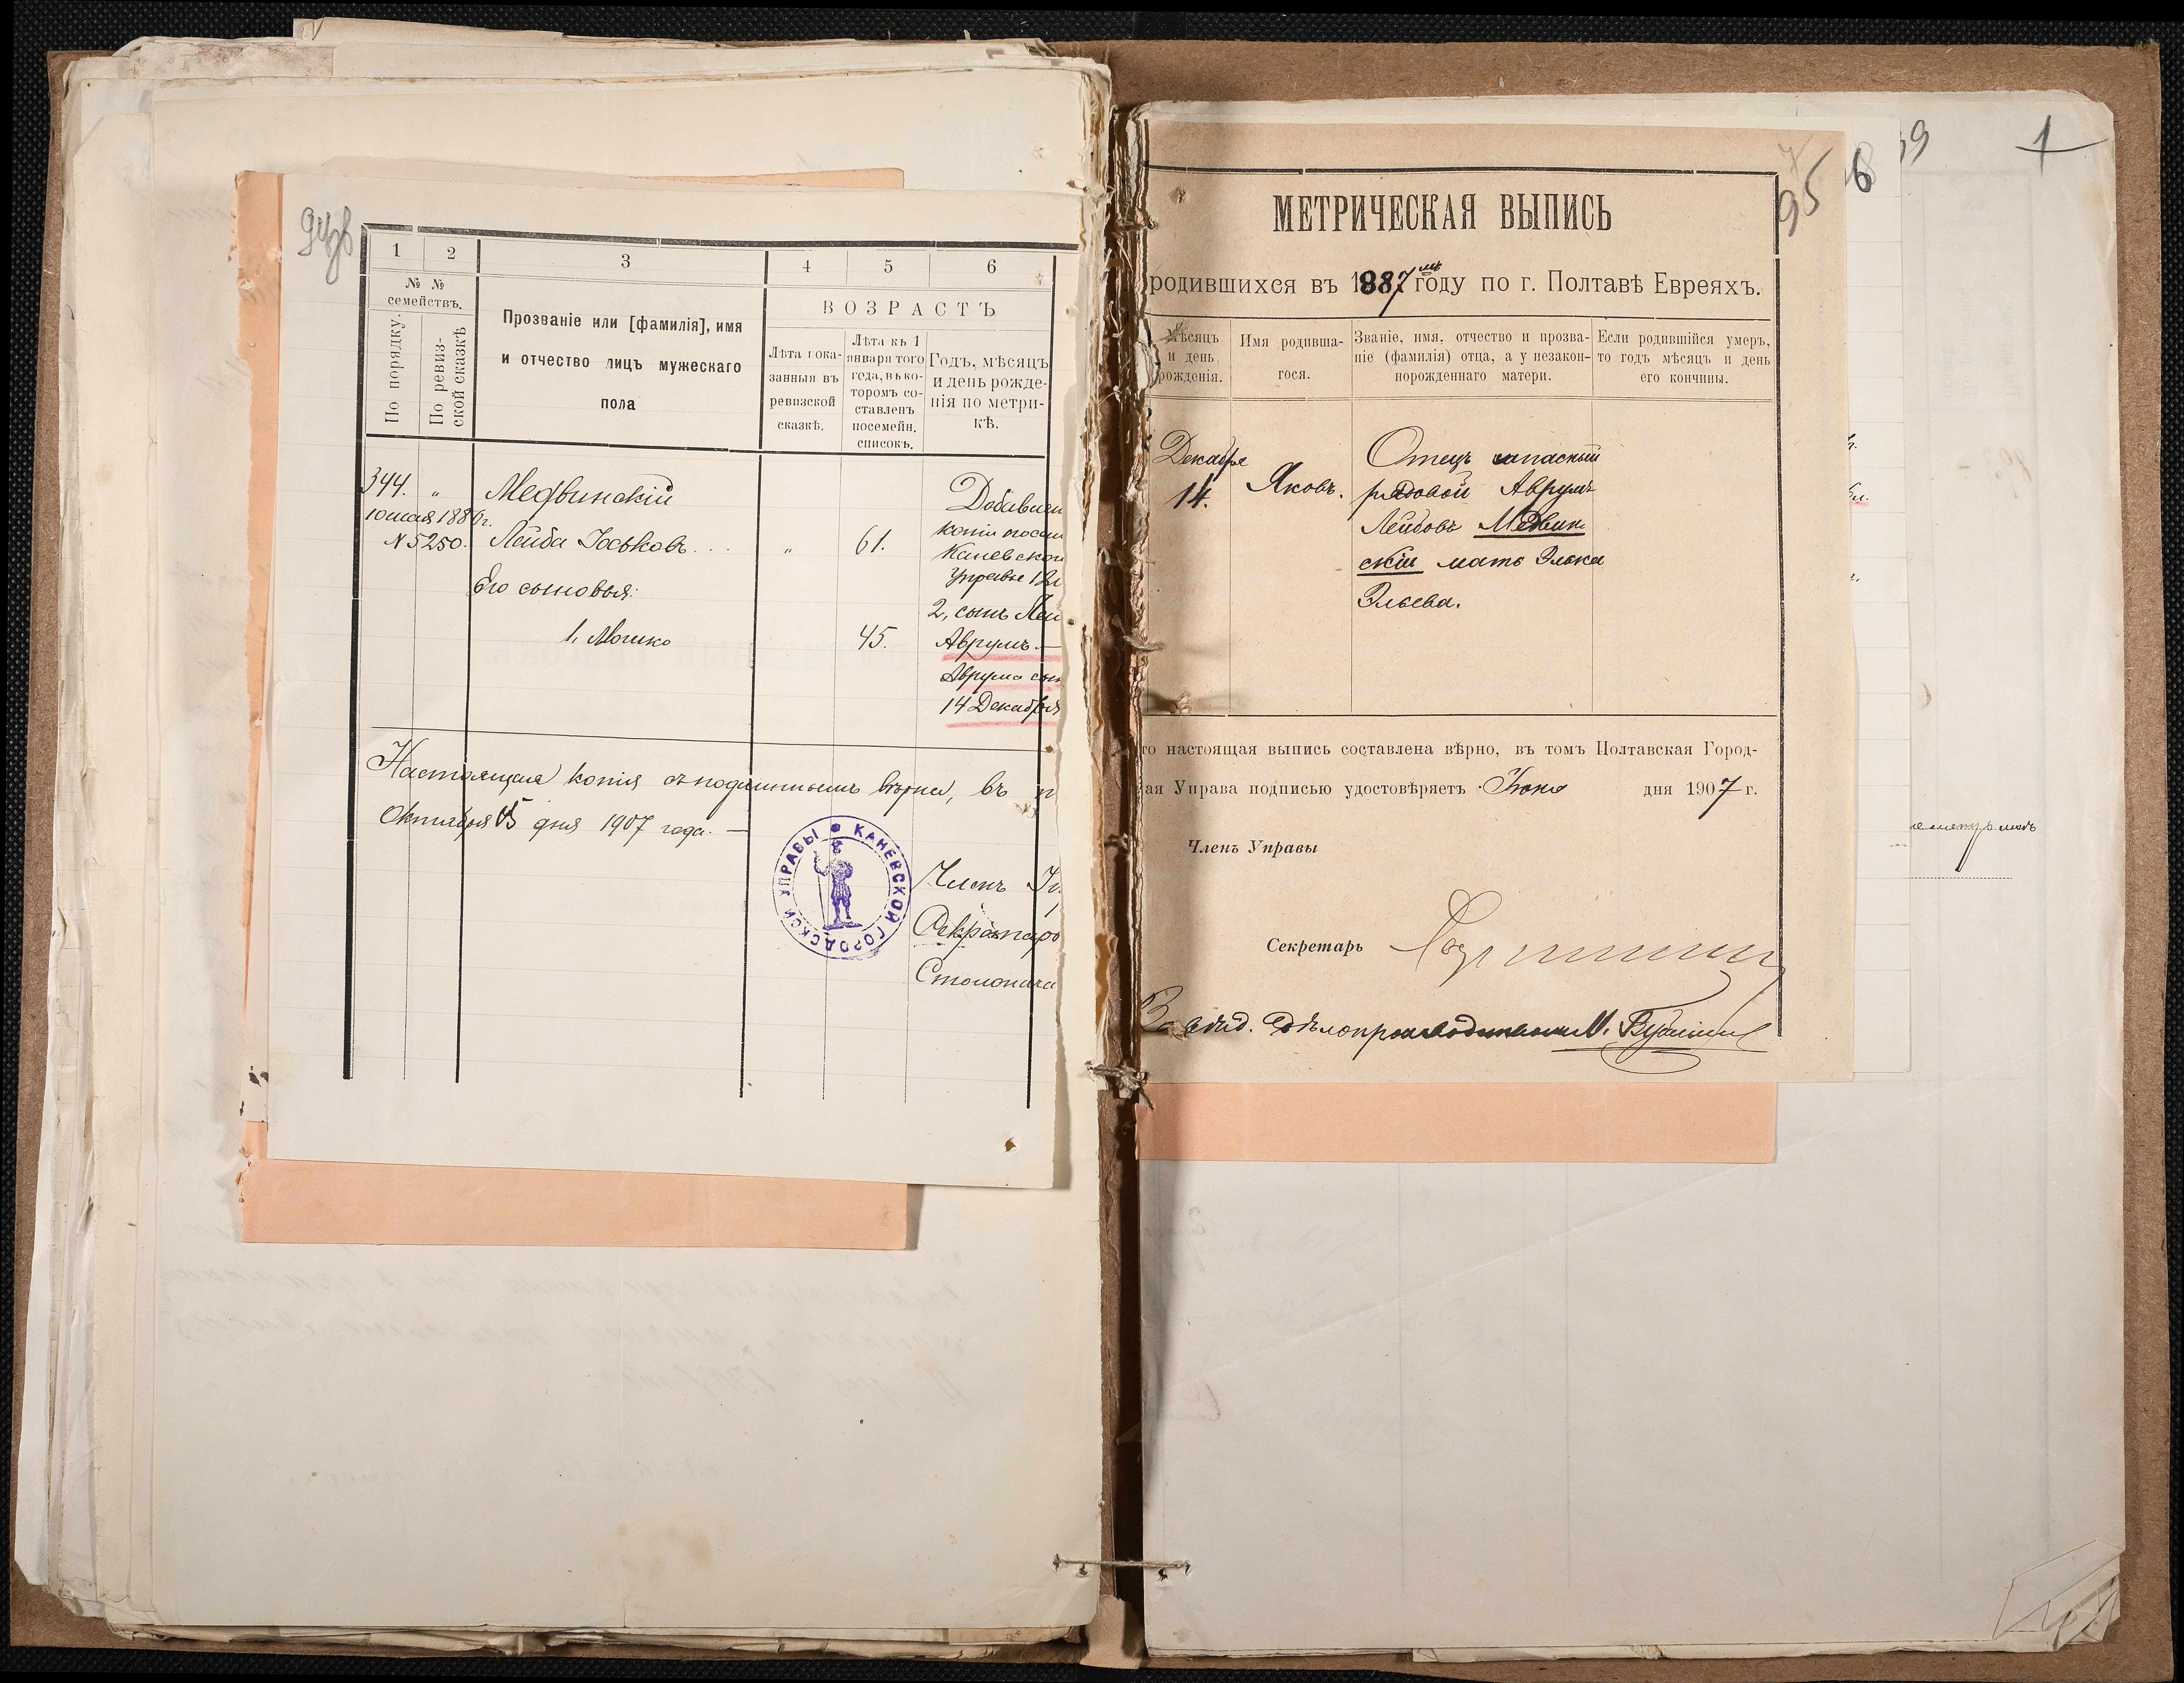 1
2
3
4
5
6
№ №
семействъ.
По порядку.
По ревиз-
ской сказкѣ
Прозваніе или [фамилія], имя
и отчество лицъ мужескаго
пола
ВОЗРАСТЪ
Лѣта пока-
занныя въ
ревизской
сказкѣ.
Лѣта къ 1
января того
года, въ ко-
торомъ со-
ставленъ
посемейн.
списокъ.
Годъ, мѣсяцъ
и день рожде-
нія по метри-
кѣ.
344. „ Медвинскій
10 мая 1886г.
№ 5250. Лейба Іоськовъ... „ 61.
Его сыновья:
1, Мошко 45.
Добавлен
копіи посем
Каневской
Управы
2, сынъ Лей
Аврумъ —
Аврума сын
14 Декабря
Настоящая копія съ подлиннымъ вѣрна, въ
Октября 15 дня 1907 года. —
КАНЕВСКОЙ ГОРОДСКОЙ УПРАВЫ
Членъ
Секретарь
Столонача
95
6
39
1
МЕТРИЧЕСКАЯ ВЫПИСЬ
родившихся въ 1887мъ году по г. Полтавѣ Евреяхъ.
Мѣсяцъ
и день
рожденія.
Имя родивша-
гося.
Званіе, имя, отчество и прозва-
ніе (фамилія) отца, а у незакон-
норожденнаго матери.
Если родившійся умеръ,
то годъ мѣсяцъ и день
его кончины.
Декабря
14.
Яковъ.
Отецъ запасный
рядовой Аврумъ
Лейбовъ Медвин
скій мать Элька
Эльева.
то настоящая выпись составлена вѣрно, въ томъ Полтавская Город-
ая Управа подписью удостовѣряетъ Іюня дня 1907 г.
Членъ Управы
Секретарь
Завѣд. Дѣлопроизводствомъ М.